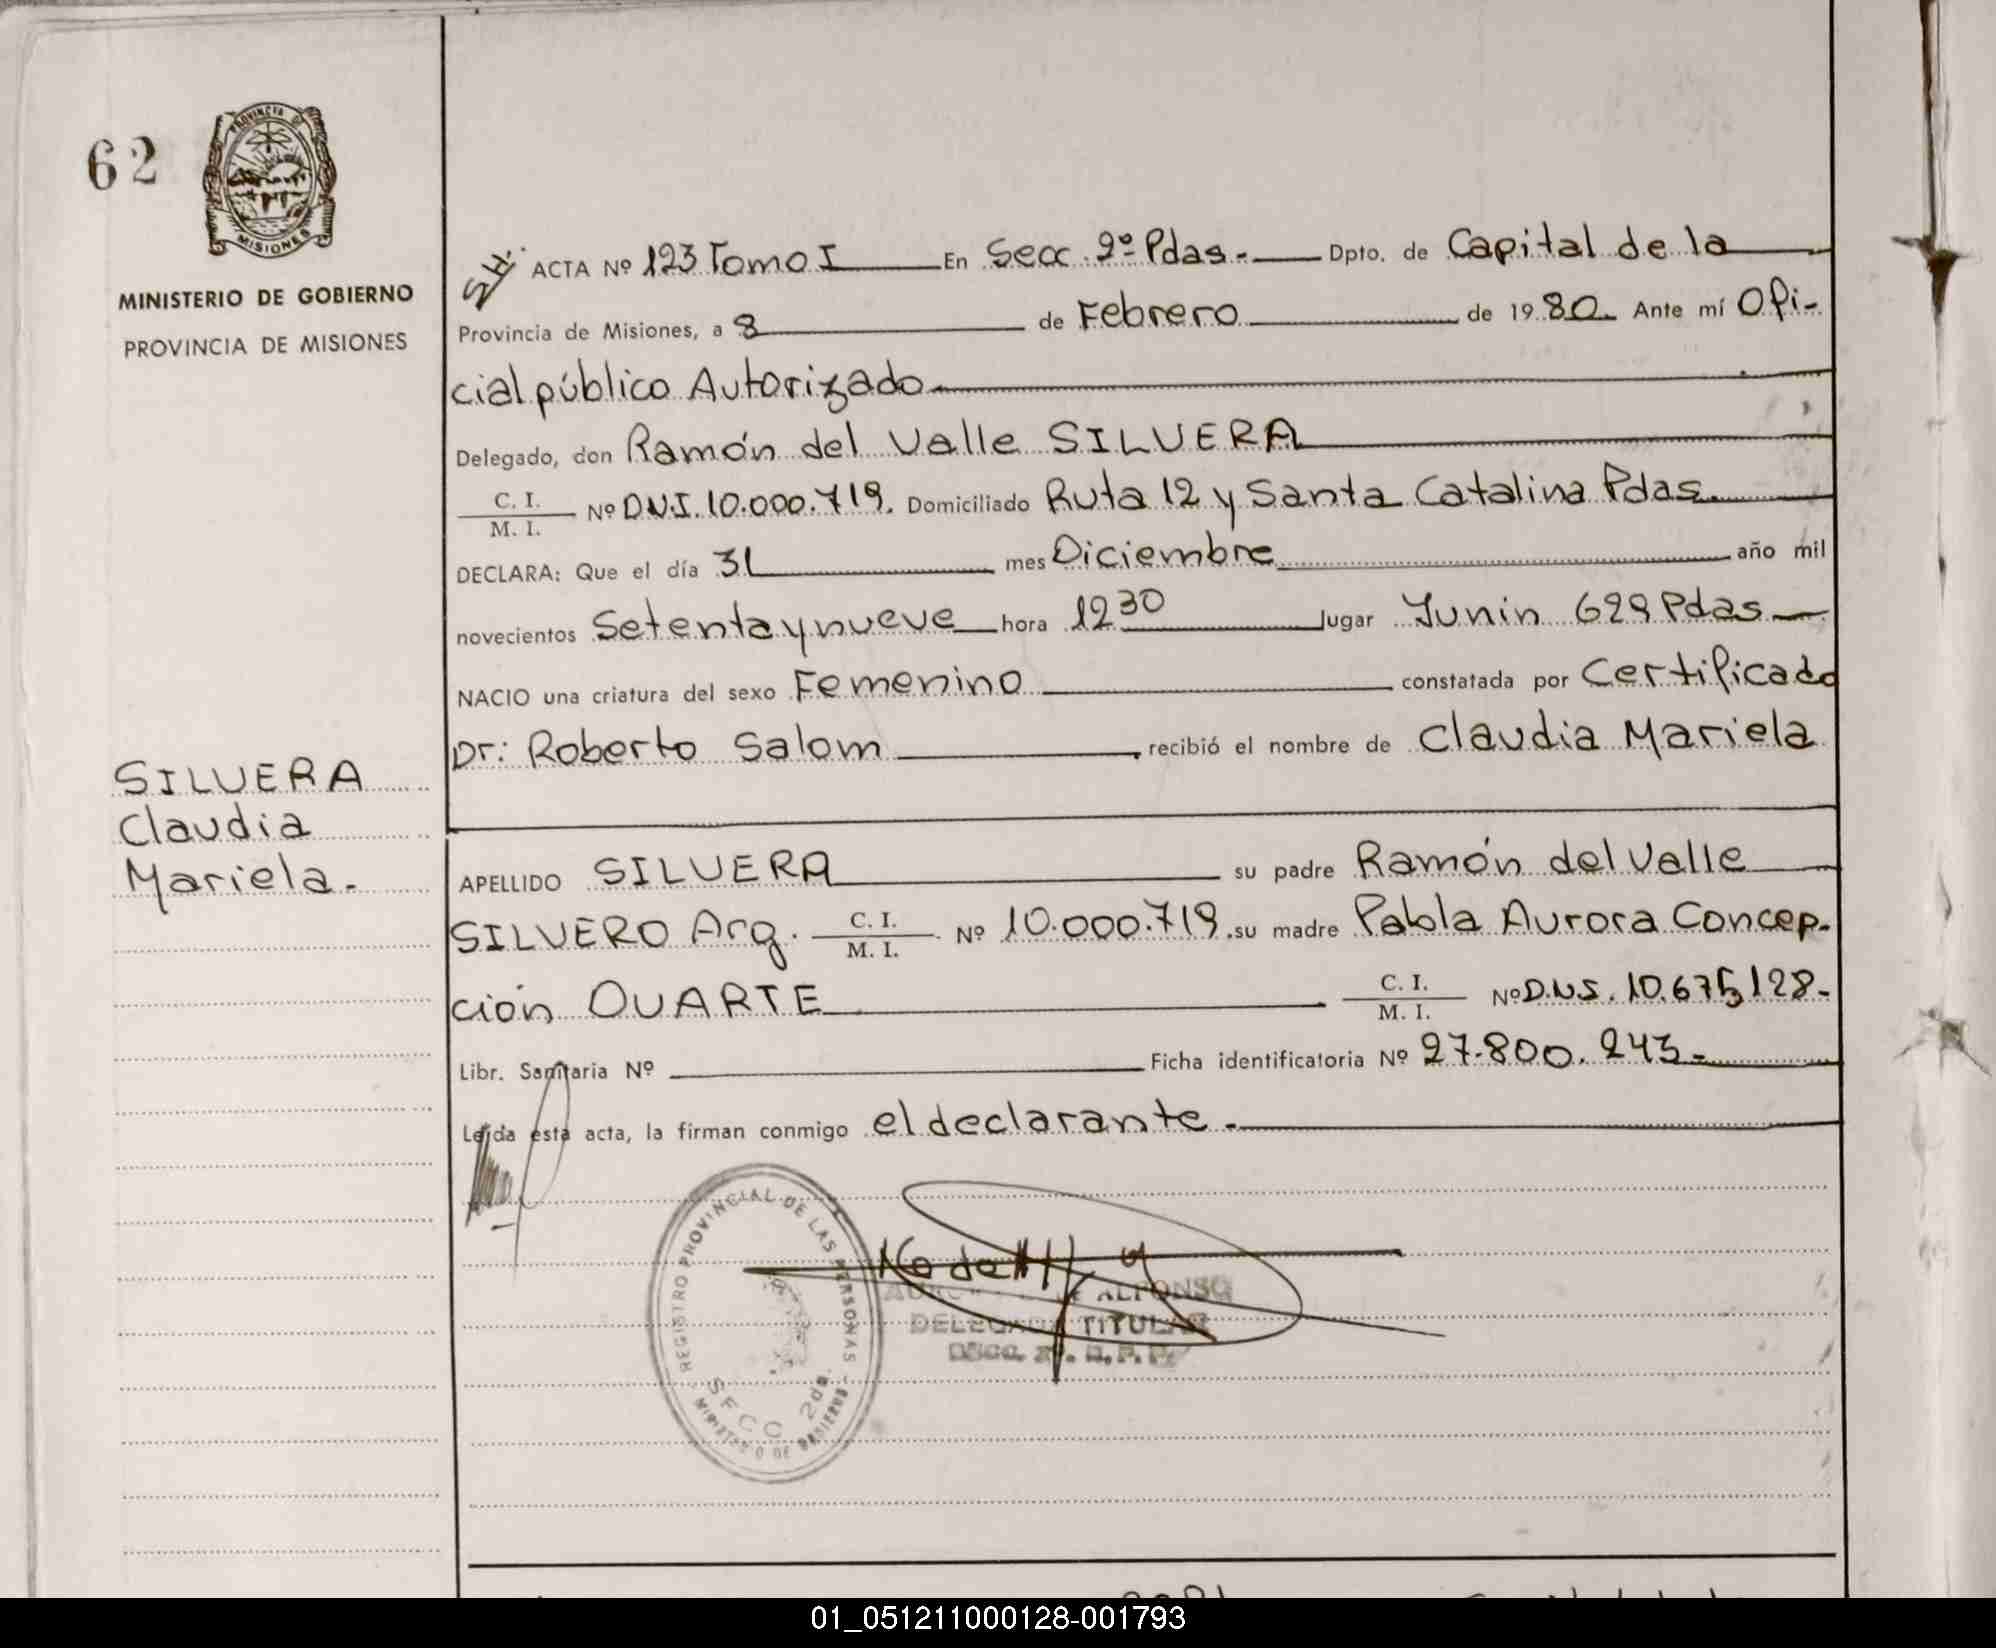 62
PROVINCIA DE
MISIONES
MINISTERIO DE GOBIERNO
PROVINCIA DE MISIONES
SILVERA
Claudia
Mariela.
ACTA Nº 123 Tomo I En Secc. 2º Pdas.- Dpto. de Capital de la
Provincia de Misiones, a 8 de Febrero de 1980. Ante mí Ofi-
cial público Autorizado
Delegado, don Ramón del Valle SILVERA
C. I.
M. I. Nº D.N.I. 10.000.719. Domiciliado Ruta 12 y Santa Catalina Pdas.
DECLARA: Que el día 31 mes Diciembre año mil
novecientos Setenta y nueve hora 12 30 lugar Junin 629 Pdas
NACIO una criatura del sexo Femenino constatada por Certificado
Dr: Roberto Salom, recibió el nombre de Claudia Mariela
APELLIDO SILVERA su padre Ramón del Valle
SILVERO Arg. C. I.
M. I. Nº 10.000.719. su madre Pabla Aurora Concep-
ción DUARTE C. I.
M. I. Nº D.N.I. 10.675.128-
Libr. Sanitaria Nº Ficha identificatoria Nº 27.800.243-
Leída esta acta, la firman conmigo el declarante.-
REGISTRO PROVINCIAL DE LAS PERSONAS
SECC 2da.
MINISTERIO DE GOBIERNO
ALFONSO
DELEGADO TITULAR
01_051211000128-001793